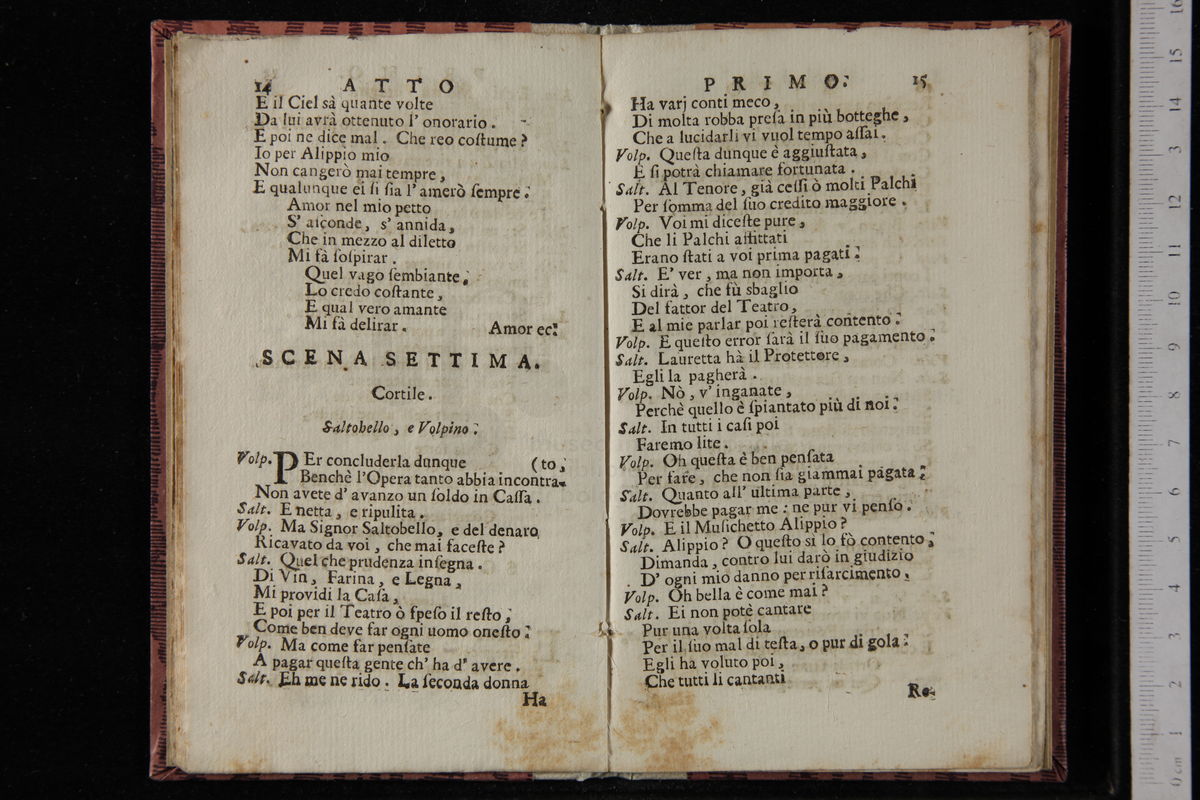 14 ATTO
E il Ciel sà quante volte
Da lui avrà ottenuto l' onorario.
E poi ne dice mal. Che reo coſtume?
Io per Alippio mio
Non cangerò mai tempre,
E qualunque ei ſi ſia l' amerò ſempre:
Amor nel mio petto
S' aſconde, s' annida,
Che in mezzo al diletto
Mi fà ſoſpirar.
Quel vago ſembiante,
Lo credo coſtante,
E qual vero amante
Mi fà delirar. Amor ec:
SCENA SETTIMA.
Cortile.
Saltobello, e Volpino:
Volp. PEr concluderla dunque (to,
Benchè l'Opera tanto abbia incontra-
Non avete d' avanzo un ſoldo in Caſſa.
Salt. E netta, e ripulita.
Volp. Ma Signor Saltobello, e del denaro
Ricavato da voi, che mai faceſte?
Salt. Quel che prudenza inſegna.
Di Vin, Farina, e Legna,
Mi providi la Caſa,
E poi per il Teatro ò ſpeſo il reſto;
Come ben deve far ogni uomo oneſto:
Volp. Ma come far penſate
A pagar queſta gente ch' ha d' avere.
Salt. Eh me ne rido. La ſeconda donna
Ha
PRIMO: 15
Ha varj conti meco,
Di molta robba preſa in più botteghe,
Che a lucidarli vi vuol tempo aſſai.
Volp. Queſta dunque è aggiuſtata,
E ſi potrà chiamare fortunata.
Salt. Al Tenore, già ceſſi ò molti Palchi
Per ſomma del ſuo credito maggiore.
Volp. Voi mi diceſte pure,
Che li Palchi affittati
Erano ſtati a voi prima pagati:
Salt. E' ver, ma non importa,
Si dirà, che fù sbaglio
Del fattor del Teatro,
E al mie parlar poi reſterà contento:
Volp. E queſto error ſarà il ſuo pagamento:
Salt. Lauretta hà il Protettore,
Egli la pagherà.
Volp. Nò, v' inganate,
Perchè quello è ſpiantato più di noi:
Salt. In tutti i caſi poi
Faremo lite.
Volp. Oh queſta è ben penſata
Per fare, che non ſia giammai pagata:
Salt. Quanto all' ultima parte,
Dovrebbe pagar me: ne pur vi penſo:
Volp. E il Muſichetto Alippio?
Salt. Alippio? O queſto si lo fò contento;
Dimanda, contro lui darò in giudizio
D' ogni mio danno per riſarcimento.
Volp. Oh bella è come mai?
Salt. Ei non potè cantare
Pur una volta ſola
Per il ſuo mal di teſta, o pur di gola:
Egli ha voluto poi,
Che tutti li cantanti
Re-